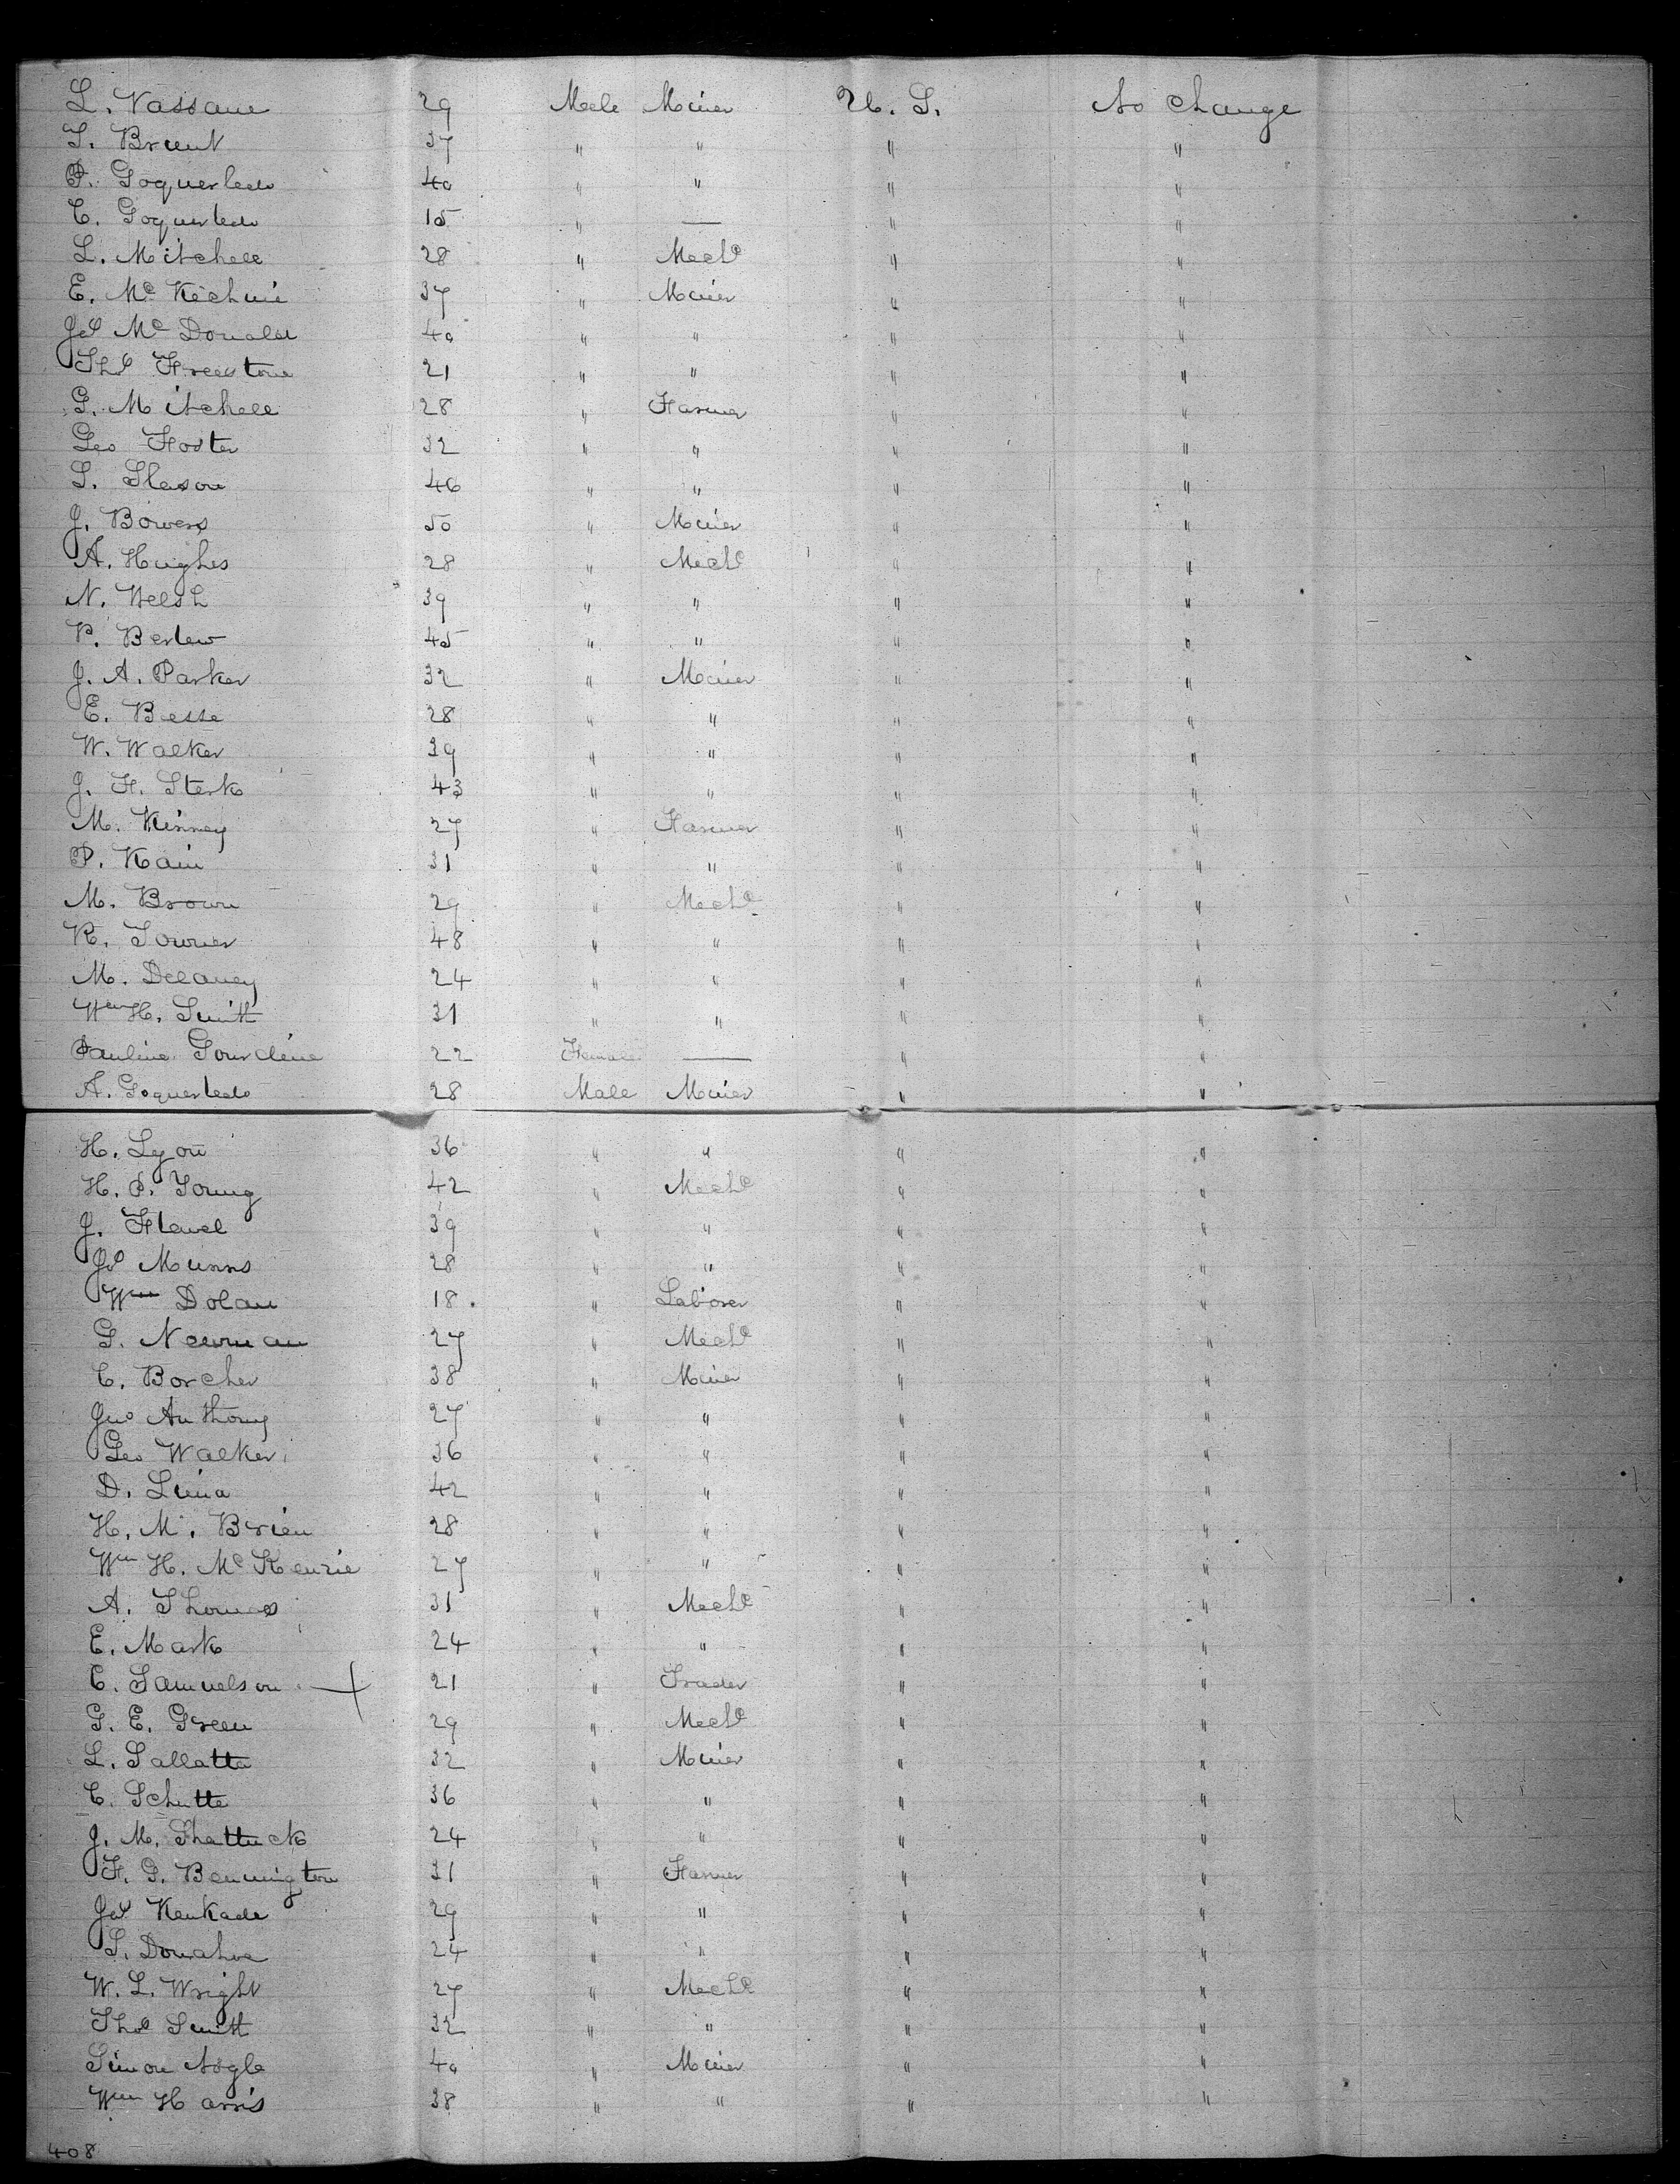 L. Vassane 29 Male Miner U. S. No change
T. Brunt 37 " " " "
P. Goquerledo 40 " " " "
C. Goquerledo 15 " — " "
L. Mitchell 28 " Mechc " "
E. Mc Kechnie 37 " Miner " "
Jas Mc Donald 40 " " " "
Thos Freestone 21 " " " "
G. Mitchell 28 " Farmer " "
Geo Foster 32 " " " "
S. Slason 46 " " " "
J. Bowers 50 " Miner " "
A. Hughes 28 " Mechc " "
N. Welsh 39 " " " "
P. Berlew 45 " " " "
J. A. Parker 32 " Miner " "
E. Besse 28 " " " "
W. Walker 39 " " " "
J. F. Sterk 43 " " " "
M. Kinney 27 " Farmer " "
P. Kain 31 " " " "
M. Brown 29 " Mechc " "
R. Towner 48 " " " "
M. Delaney 24 " " " "
Wm H. Smith 31 " " " "
Pauline Gourdine 22 Female — " "
A. Goquerledo 28 Male Miner " "
H. Lyon 36 " " " "
H. P. Young 42 " Mechc " "
J. Flavel 39 " " " "
Jas Munns 28 " " " "
Wm Dolan 18. " Laborer " "
G. Newman 27 " Mechc " "
C. Borcher 38 " Miner " "
Jno Anthony 27 " " " "
Geo Walker 36 " " " "
D. Luna 42 " " " "
H. M. Brien 28 " " " "
Wm H. Mc Kenzie 27 " " " "
A. Thomas 31 " Mechc " "
E. Mark 24 " " " "
C. Samuelson 21 " Trader " "
G. E. Green 29 " Mechc " "
L. Sallatta 32 " Miner " "
C. Schutte 36 " " " "
J. M. Shattuck 24 " " " "
F. G. Bennington 31 " Farmer " "
Jas Kenkade 29 " " " "
S. Donahue 24 " " " "
W. L. Wright 27 " Mechc " "
Thos Smith 32 " " " "
Simon Nogle 40 " Miner " "
Wm Harris 38 " " " "
408